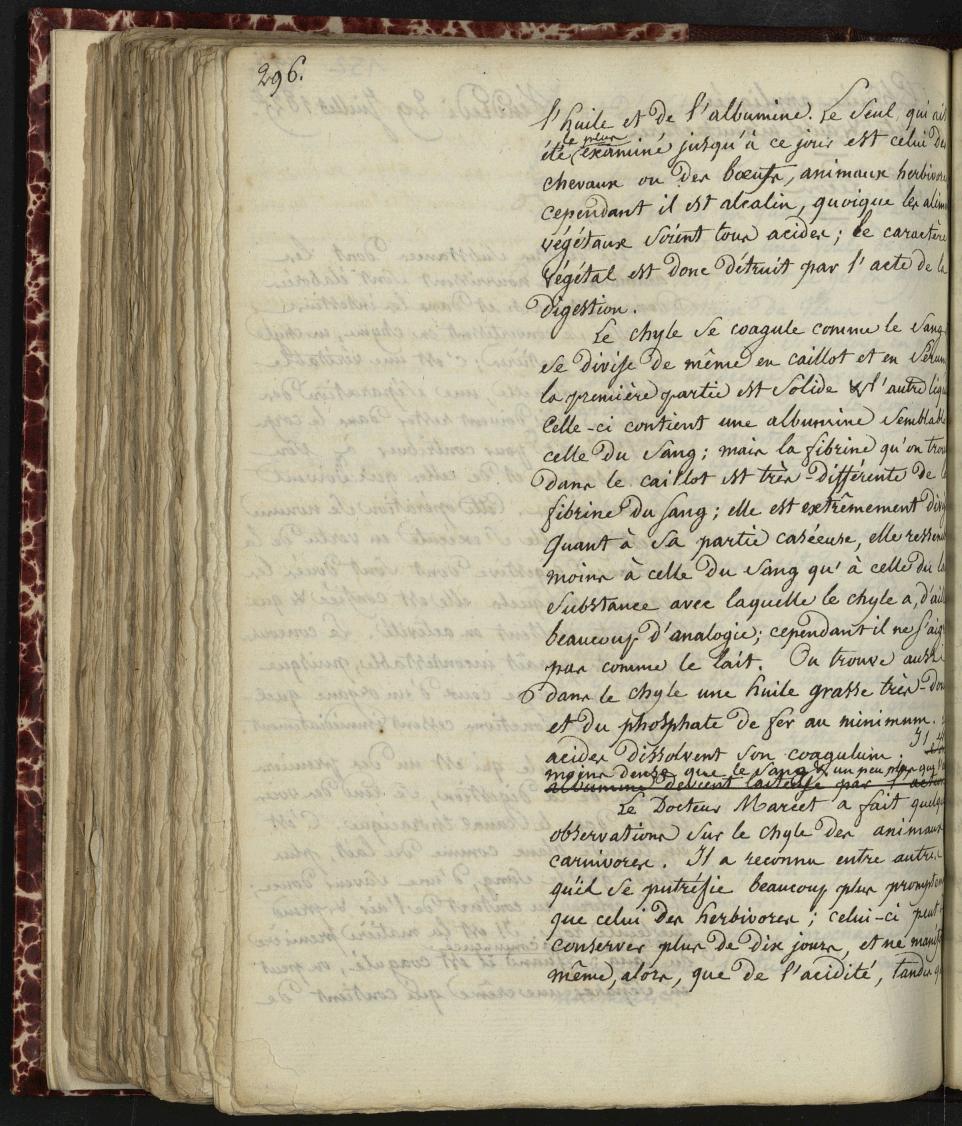 296.
l'huile et de l'albumine. Le Seul, qui ait
le plus
été examiné jusqu'à ce jour est celui des
chevaux ou des bœufs, animaux herbivores
cependant il est alcalin, quoique les alim
végétaux soient tous acides; le caractère
végétal est donc détruit par l'acte de la
digestion.
Le chyle se coagule comme le Sang
se divise de même en caillot et en Sérum
la première partie est Solide & l'autre liqu
Celle-ci contient une albumine Semblable
celle du Sang; mais la fibrine qu'on trou
dans le caillot est très-différente de la
fibrine du Sang; elle est extrêmement div
Quant à Sa partie caséeuse, elle ressem
moins à celle du Sang qu'à celle du la
Substance avec laquelle le chyle a, d'ail
beaucoup d'analogie; cependant il ne s'aig
pas comme le lait. On trouve aussi
dans le chyle une huile grasse très-dou
et du phosphate de fer au minimum.
acides dissolvent son coagulum. Il est
moins dense que le Sang & un peu plus que
albumine devient laiteuse par l'action
Le Docteur Marcet a fait quelqu
observations sur le chyle des animaux
carnivores. Il a reconnu entre autres
qu'il se putréfie beaucoup plus promptem
que celui des herbivores; celui-ci peut
conserver plus de dix jours, et ne manif
même, alors, que de l'acidité, tandis q